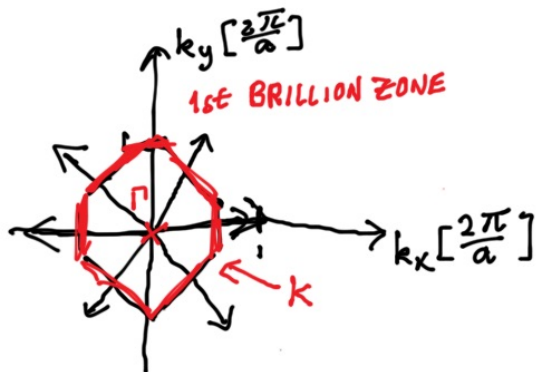 ky [2π/a]
1st BRILLION ZONE
1
Γ
kx [2π/a]
1
K